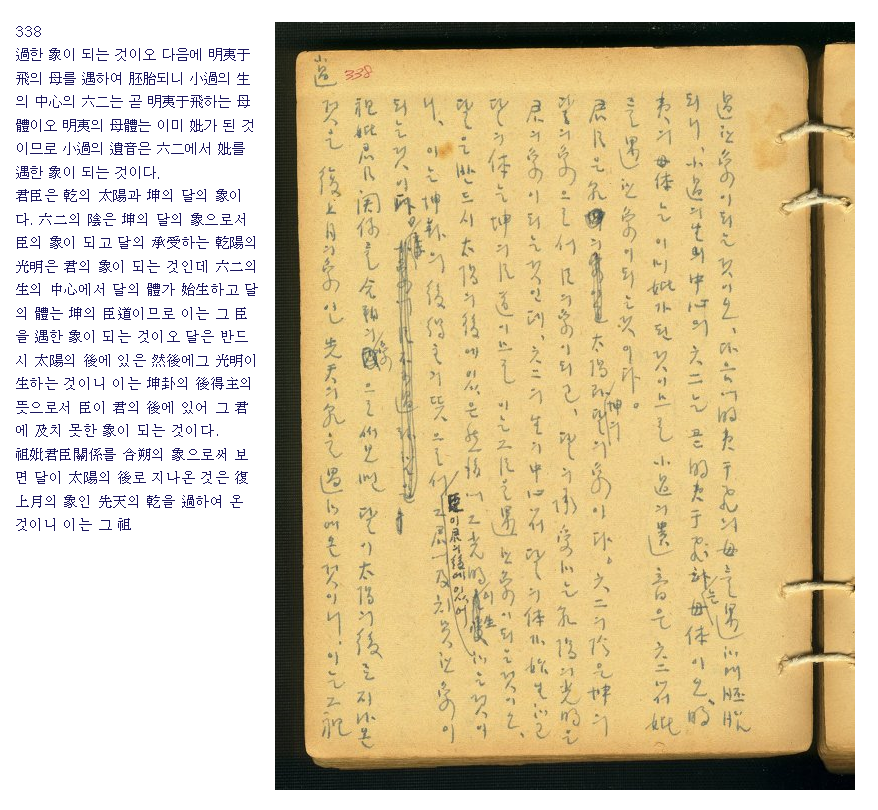 338
過한 象이 되는 것이오 다음에 明夷于
飛의 母를 遇하여 胚胎되니 小過의 生
의 中心의 六二는 곧 明夷于飛하는 母
體이오 明夷의 母體는 이미 妣가 된 것
이므로 小過의 遺音은 六二에서 妣를
遇한 象이 되는 것이다.
君臣은 乾의 太陽과 坤의 달의 象이
다. 六二의 陰은 坤의 달의 象으로서
臣의 象이 되고 달의 承受하는 乾陽의
光明은 君의 象이 되는 것인데 六二의
生의 中心에서 달의 體가 始生하고 달
의 體는 坤의 臣道이므로 이는 그 臣
을 遇한 象이 되는 것이오 달은 반드
시 太陽의 後에 있은 然後에그 光明이
生하는 것이니 이는 坤卦의 後得主의
뜻으로서 臣이 君의 後에 있어 그 君
에 及치 못한 象이 되는 것이다.
祖妣君臣關係를 合朔의 象으로써 보
면 달이 太陽의 後로 지나온 것은 復
上月의 象인 先天의 乾을 過하여 온
것이니 이는 그 祖
338
過한 象이 되는 것이오, 다음에 明夷于飛의 母를 遇하여 胚胎
되니, 小過의 生의 中心의 六二는 곧 明夷于飛하는 母体이오, 明
夷의 母体는 이미 妣가 된 것이므로 小過의 遺音은 六二에서 妣
를 遇한 象이 되는 것이다.
君臣은 乾의 太陽과 坤의 달의 象이다. 六二의 陰은 坤의
달의 象으로서 臣의 象이 되고, 달의 承受하는 乾陽의 光明은
君의 象이 되는 것인데, 六二의 生의 中心에서 달의 体가 始生하고
달의 体는 坤의 臣道이므로 이는 그 臣을 遇한 象이 되는 것이오,
달은 반드시 太陽의 後에 있은 然後에 그 光明이 生하는 것이
니, 이는 坤卦의 後得主의 뜻으로서 臣이 君의 後에 있어 그 君에 及치 못한 象이
되는 것이다.
祖妣君臣 関係를 合朔의 象으로써 보면 달이 太陽의 後로 지나온
것은 復上月의 象인 先天의 乾을 過하여 온 것이니, 이는 그 祖